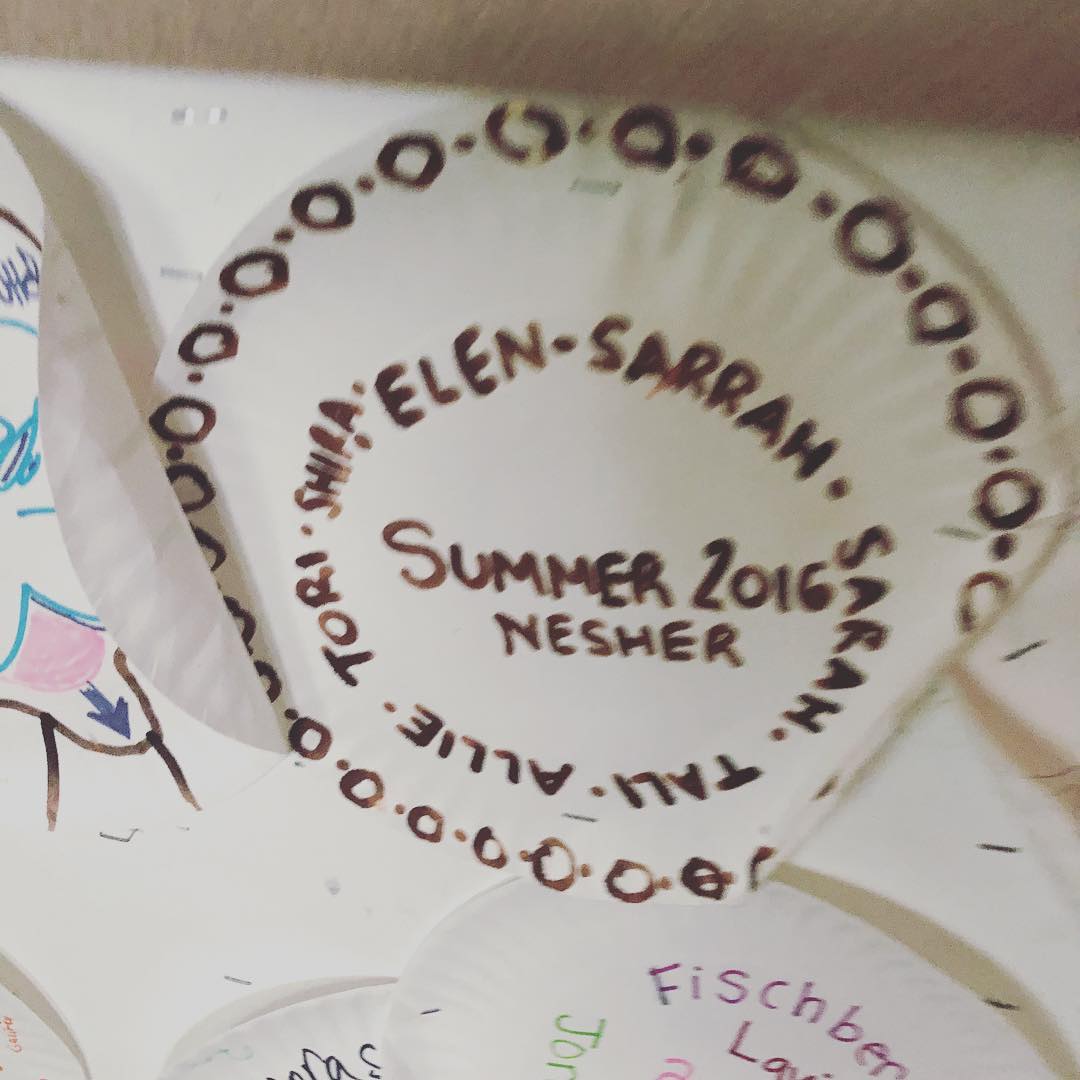 ELEN · SARRAH · SARAH · TALI · ALLIE · TORI · SHIRA ·
SUMMER 2016
NESHER
Fischben